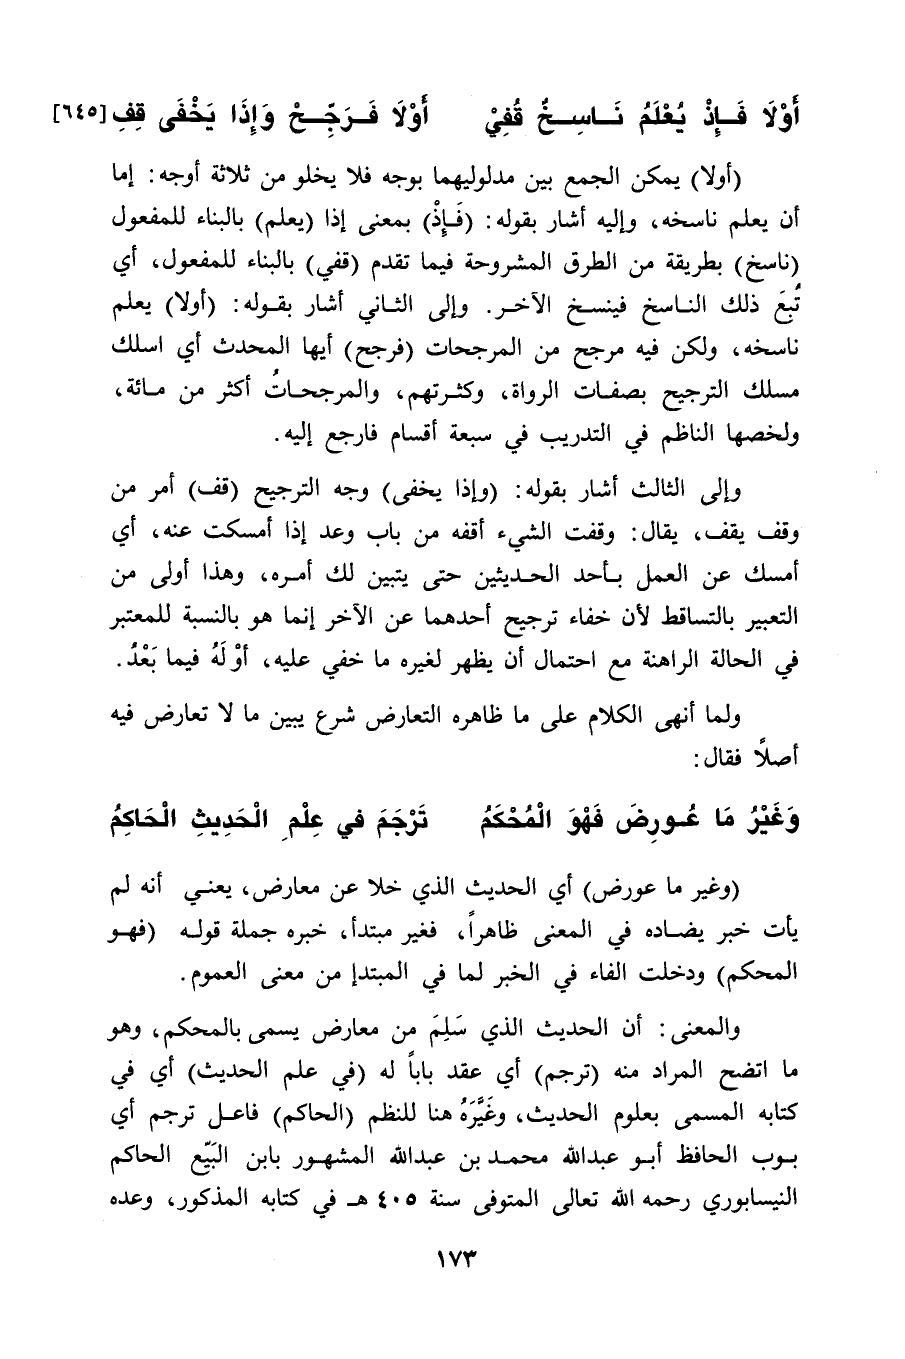 أَوْلَا فَـإِذْ يُعْلَمُ نَـاسِـخٌ قُفِيْ أَوْلَا فَـرَجِّـحْ وَإِذَا يَخْفَى قِفِ [٦٤٥]
(أولا) يمكن الجمع بين مدلوليهما بوجه فلا يخلو من ثلاثة أوجه: إما
أن يعلم ناسخه، وإليه أشار بقوله: (فَإِذْ) بمعنى إذا (يعلم) بالبناء للمفعول
(ناسخ) بطريقة من الطرق المشروحة فيما تقدم (قفي) بالبناء للمفعول، أي
تُبِعَ ذلك الناسخ فينسخ الآخر. وإلى الثاني أشار بقوله: (أولا) يعلم
ناسخه، ولكن فيه مرجح من المرجحات (فرجح) أيها المحدث أي اسلك
مسلك الترجيح بصفات الرواة، وكثرتهم، والمرجحاتُ أكثر من مائة،
ولخصها الناظم في التدريب في سبعة أقسام فارجع إليه.
وإلى الثالث أشار بقوله: (وإذا يخفى) وجه الترجيح (قف) أمر من
وقف يقف، يقال: وقفت الشيء أقفه من باب وعد إذا أمسكت عنه، أي
أمسك عن العمل بأحد الحديثين حتى يتبين لك أمره، وهذا أولى من
التعبير بالتساقط لأن خفاء ترجيح أحدهما عن الآخر إنما هو بالنسبة للمعتبر
في الحالة الراهنة مع احتمال أن يظهر لغيره ما خفي عليه، أوْ لَهُ فيما بَعْدُ.
ولما أنهى الكلام على ما ظاهره التعارض شرع يبين ما لا تعارض فيه
أصلاً فقال:
وَغَيْرُ مَا عُـورِضَ فَهْوَ الْمُحْكَمُ تَرْجَمَ فِي عِلْمِ الْحَدِيثِ الْحَاكِمُ
(وغير ما عورض) أي الحديث الذي خلا عن معارض، يعني أنه لم
يأت خبر يضاده في المعنى ظاهراً، فغير مبتدأ، خبره جملة قوله (فهو
المحكم) ودخلت الفاء في الخبر لما في المبتدإ من معنى العموم.
والمعنى: أن الحديث الذي سَلِمَ من معارض يسمى بالمحكم، وهو
ما اتضح المراد منه (ترجم) أي عقد باباً له (في علم الحديث) أي في
كتابه المسمى بعلوم الحديث، وغَيَّرَهُ هنا للنظم (الحاكم) فاعل ترجم أي
بوب الحافظ أبو عبدالله محمد بن عبدالله المشهور بابن البَيِّع الحاكم
النيسابوري رحمه الله تعالى المتوفى سنة ٤٠٥ هـ في كتابه المذكور، وعده
١٧٣